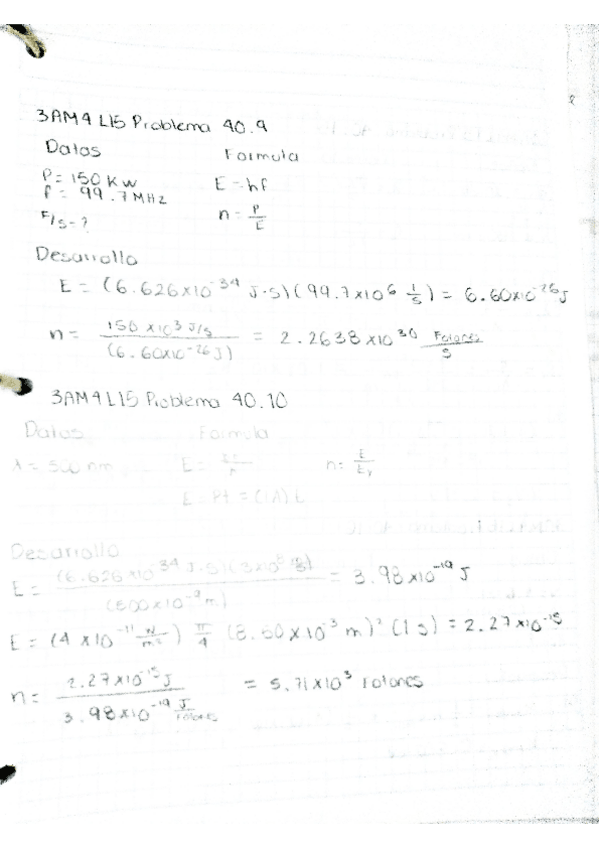 3AM4 L15 Problema 40.9
Datos Formula
P = 150 KW E = hf
f = 99.7 MHz n = P/E
F/s = ?
Desarrollo
E = (6.626x10^-34 J·s)(99.7x10^6 1/s) = 6.60x10^-26 J
n = 150 x10^3 J/s / (6.60x10^-26 J) = 2.2638 x10^30 Fotones/s
3AM4 L15 Problema 40.10
Datos Formula
λ = 500 nm E = n = E/Eγ
E = Pt = (IA)t
Desarrollo
E = (6.626x10^-34 J·s)(3x10^8 m/s) / (500x10^-9 m) = 3.98x10^-19 J
E = (4 x10^-11 W/m²) π/4 (8.50x10^-3 m)² (1 s) = 2.27x10^-15
n = 2.27x10^-15 J / 3.98x10^-19 J/Fotones = 5.71x10^3 Fotones